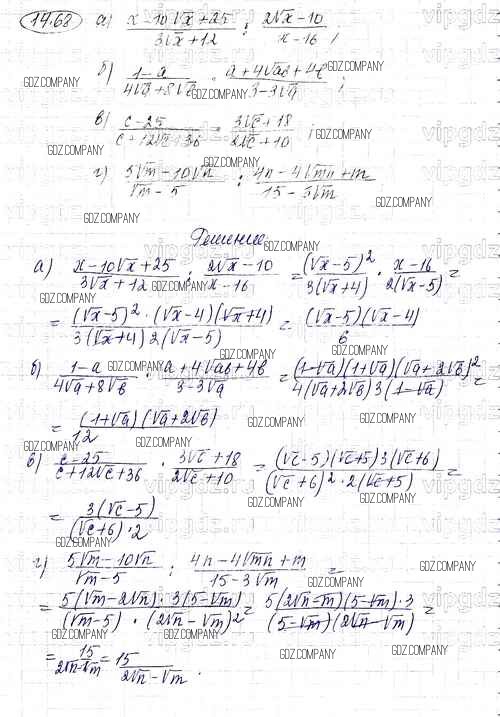 14.62 а) (x-10√x+25)/(3√x+12) : (2√x-10)/(x-16);
б) (1-a)/(4√a+8√b) · (a+4√ab+4b)/(3-3√a);
в) (c-25)/(c+12√c+36) · (3√c+18)/(2√c+10);
г) (5√m-10√n)/(√m-5) : (4n-4√mn+m)/(15-3√m)
Решение.
а) (x-10√x+25)/(3√x+12) : (2√x-10)/(x-16) = (√x-5)²/(3(√x+4)) · (x-16)/(2(√x-5)) =
= ((√x-5)² · (√x-4)(√x+4))/(3(√x+4) 2(√x-5)) = ((√x-5)(√x-4))/6
б) (1-a)/(4√a+8√b) · (a+4√ab+4b)/(3-3√a) = ((1-√a)(1+√a)(√a+2√b)²)/(4(√a+2√b) 3(1-√a)) =
= ((1+√a)(√a+2√b))/12
в) (c-25)/(c+12√c+36) · (3√c+18)/(2√c+10) = ((√c-5)(√c+5) 3(√c+6))/((√c+6)² · 2(√c+5)) =
= (3(√c-5))/((√c+6)·2)
г) (5√m-10√n)/(√m-5) : (4n-4√mn+m)/(15-3√m) =
= (5(√m-2√n) · 3(5-√m))/((√m-5) · (2√n-√m)²) = (5(2√n-m)(5-√m)·3)/((5-√m)(2√n-√m)) =
= 15/(2√n-√m) = 15/(2√n-√m).
GDZ.COMPANY
vipgdz